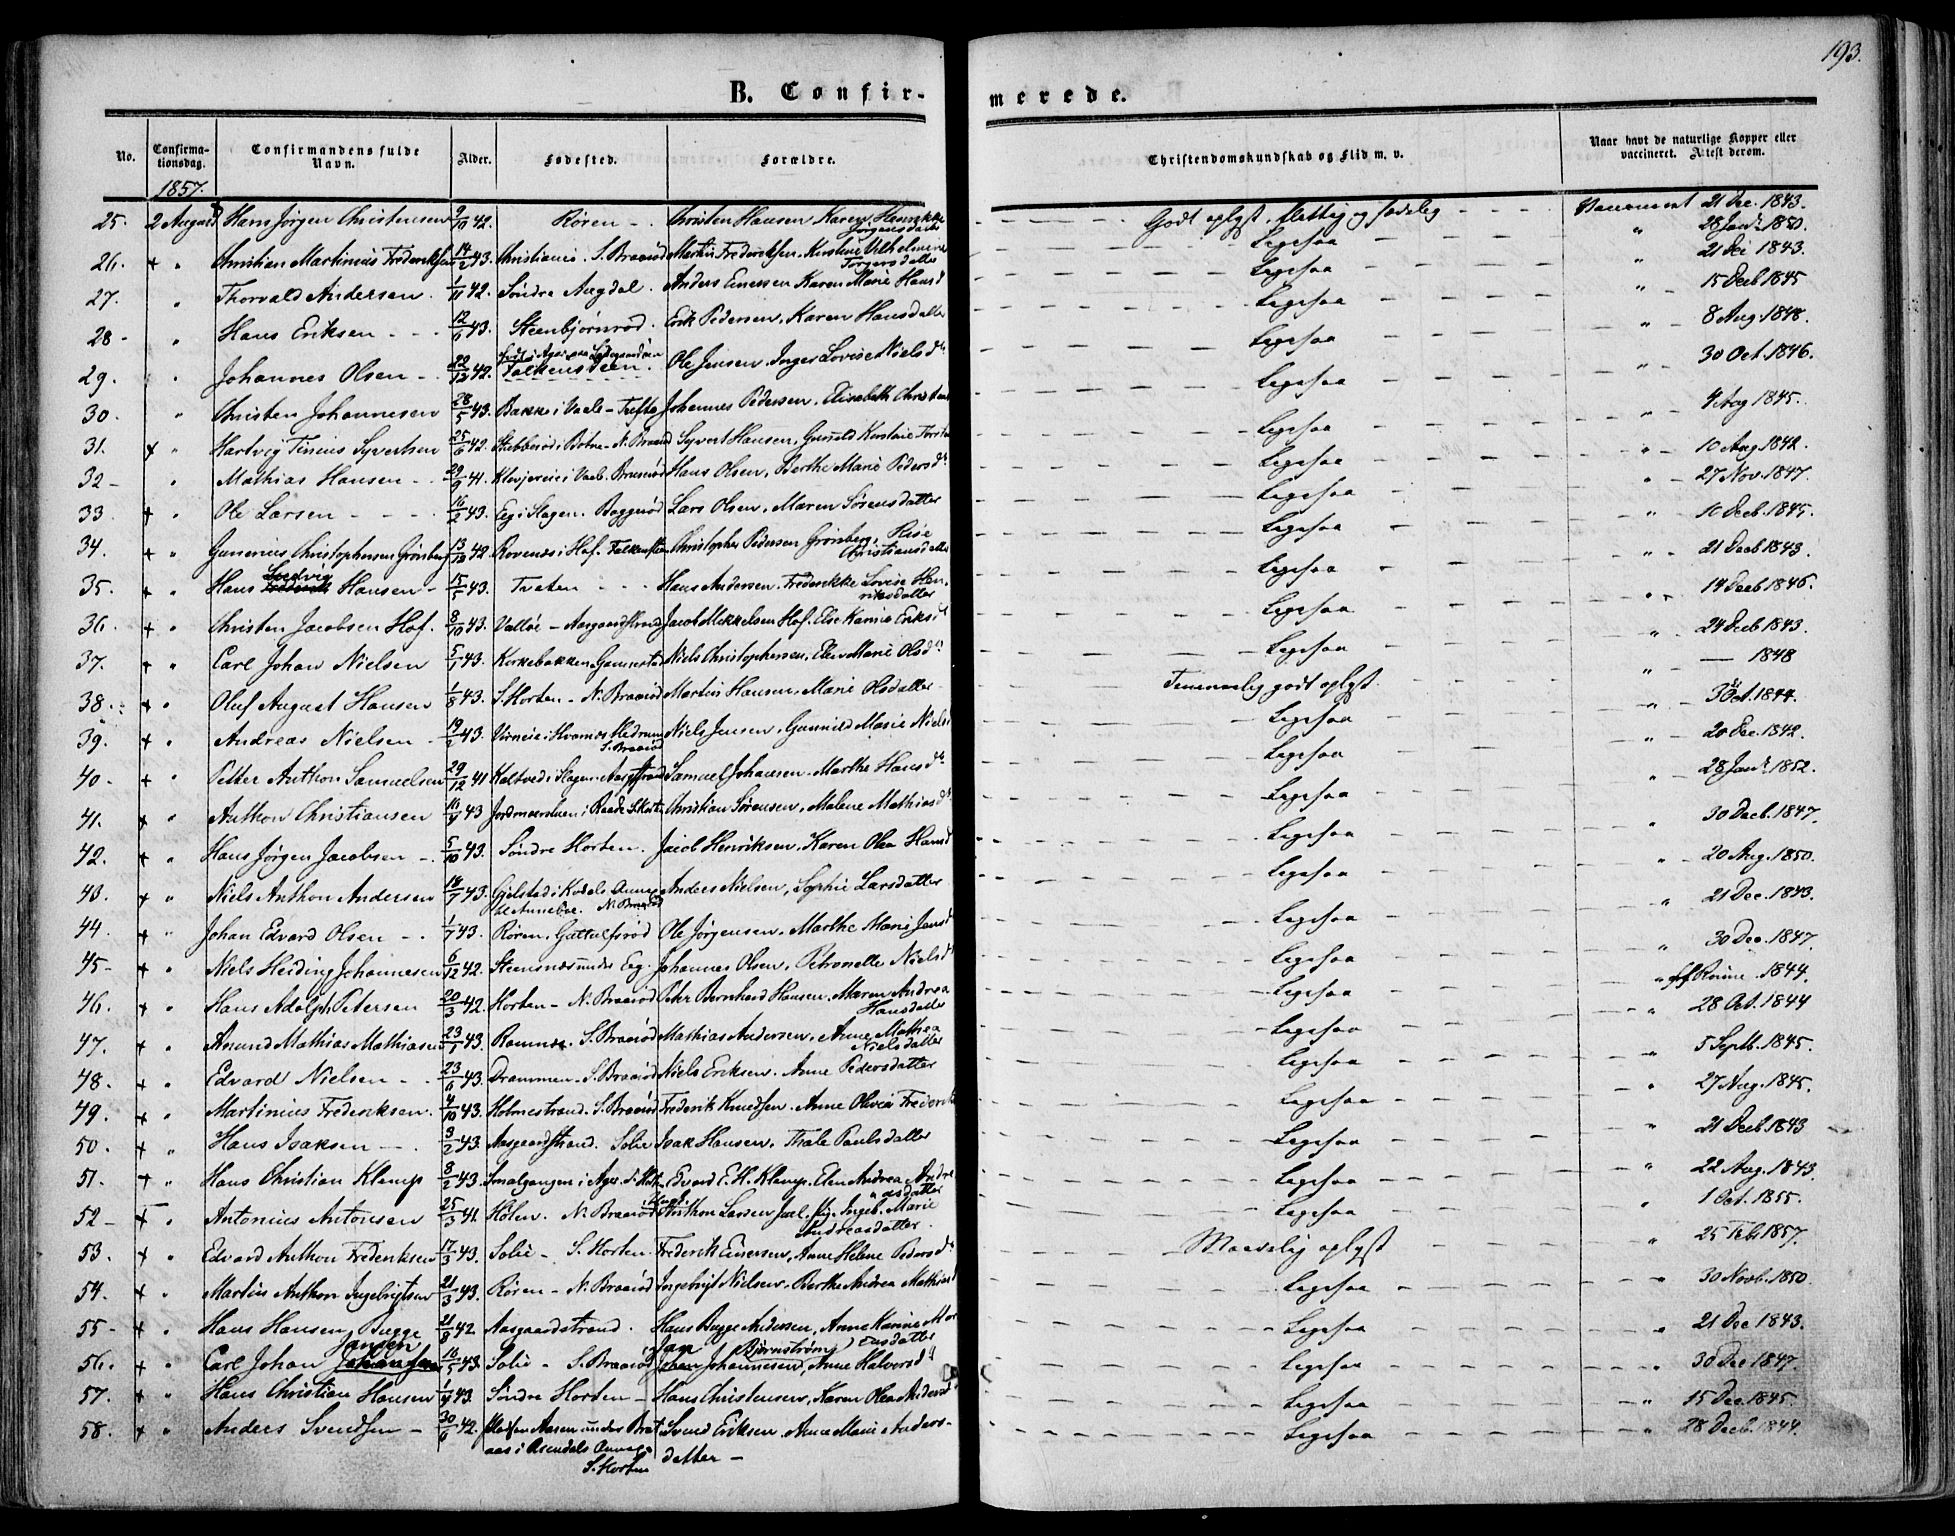 193.
B. Confirmerede.
No. Confirmationsdag. Confirmandens fulde Navn. Alder. Fødested. Forældre. Christendomskundskab og Flid m. v. Naar havt de naturlige Kopper eller vaccineret. Attest derom.
1857.
25. 2 August Hans Jørgen Christensen 9/10 42. Røren - Christen Hansen Karen Henrikke Jørgensdatter Godt oplyst. flittig og sædelig Vaccineret 21 Dec. 1843.
26. + " Christian Martinius Frederiksen 14/2 43. Christiania. S. Braarød Martin Frederiksen. Kirstine Vilhelmine Torgersdatter Ligesaa " 28 Janr 1850.
27. " Thorvald Andersen. 1/11 42. Søndre Augdal. Anders Einersen Karen Marie Hansd Ligesaa " 21 Dec 1843.
28 - " Hans Eriksen - - - 12/6 43. Steenbjørnrød. Erik Pedersen, Karen Hansdatter Ligesaa " 15 Decb 1845
29. " Johannes Olsen - 22/12 42. Falkensteen. Ole Jensen. Inger Lovise Nielsdr Ligesaa " 8 Aug. 1848.
30. " Christen Johannesen 28/5 43. Bakke i Vaale - Tufte Johannes Pedersen. Elisabeth Ligesaa " 30 Oct. 1846.
31. + " Hartvig Tinius Syvertsen 25/6 42. Stubberød i Botne - N. Braarød Syvert Hansen, Gunild Kirstine Ligesaa " 4 Aug 1845.
32 - " Mathias Hansen - - 29/9 41. i Vaale. Brunerød Hans Olsen, Berthe Marie Pedersdr Ligesaa " 10 Aug 1842.
33. + " Ole Larsen - - - - 16/2 43. Eeg i Slagen. Baggerød Lars Olsen, Maren Sørensdatter Ligesaa " 27 Nov. 1847.
34. + " Gunerius Christophersen Grønberg 13/12 42. Rovenæs i Hof. Falkensten Christopher Pedersen Grønberg, Christiansdatter Ligesaa " 10 Decb. 1845.
35. + " Hans Ludvig Hansen - 15/5 43. Tveten - - Hans Andersen. Frederikke Lovise Henriksdatter Ligesaa " 21 Decb 1843.
36. + " Christen Jacobsen Hof. 8/10 43. Valløe - Aasgaardstrand Jacob Mikkelsen Hof. Else Karine Eriksd Ligesaa " 14 Decb 1846.
37. + " Carl Johan Nielsen 5/1 43. Kirkebakken. Gannestad Niels Christophersen, Elen Marie Olsdr Ligesaa " 24 Decb 1843.
38. + " Oluf August Hansen 1/8 43. S. Horten - N. Braarød Martin Hansen, Marie Olsdatter Temmelig godt oplyst. " — 1848
39. + " Andreas Nielsen - 19/2 43. Hedrum S. Braarød Niels Jensen, Gunnild Marie Niels Ligesaa " Oct. 1844.
40 - + " Petter Anthon Samuelsen 29/12 41 Kaltved i Slagen. Aasgstrand Samuel Johansen. Marthe Hansdr Ligesaa " 20 Dec. 1842.
41. + " Anthon Christiansen 16/4 43 i Raade S. Horten Christian Sørensen, Malene Mathiasdr Ligesaa " 28 Janr 1852.
42. + " Hans Jørgen Jacobsen - 5/10 43. Søndre Horten. Jacob Henriksen, Karen Olea Hansd Ligesaa " 30 Decb. 1847.
43. + " Niels Anthon Andersen 18/7 43. Gjelstad i Kodals Annex N. Braarød Anders Nielsen, Sophie Larsdatter Ligesaa " 20 Aug. 1850.
44. + " Johan Edvard Olsen - 1/7 43. Røren. Gattulfsrød Ole Jørgensen, Marthe Marie Jensd Ligesaa " 21 Dec. 1843.
45 - + " Niels Heiding Johannesen 6/12 42. Steensnæs under Eeg. Johannes Olsen, Petronelle Nielsdr Ligesaa " 30 Dec. 1847.
46. + " Hans Adolph Petersen 20/3 42. Horten - N. Braarød Petr Bernhard Hansen, Maren Andrea Hansdatter Ligesaa " 1844.
47. + " Amund Mathias Mathiasen 23/1 43. Ramnæs. S. Braarød Mathias Andersen, Anne Mathea Nielsdatter Ligesaa " 28 Oct. 1844
48. + " Edvard Nielsen - - 23/6 43. Drammen - S. Braarød Niels Eriksen. Anne Pedersdatter Ligesaa " 5 Septb. 1845.
49. + " Martinius Frederiksen. 4/10 43. Holmestrand. S. Braarød Frederik Knudsen. Anne Olivia Frederik Ligesaa " 27 Aug. 1845.
50. + " Hans Isaksen - - 3/2 43. Aasgaardstrand. Solie Isak Hansen, Thale Paulsdatter Ligesaa " 21 Decb 1843
51. + " Hans Christian Klemp 8/2 43. Smalgangen i Ager. S. Edvard E. H. Klemp. Elen Andrea Andreasdatter Ligesaa " 22 Aug. 1843.
52 - + " Antonius Antonsen 25/3 41. Hølen. N. Braarød Anthon Larsen Ingeb. Marie Andreasdatter. Ligesaa " 1 Oct. 1855.
53. + " Edvard Anthon Frederiksen 17/3 43. Solie - S. Horten. Frederik Einersen, Anne Helene Pedersdr Maadelig oplyst " 25 Feb 1857.
54. + " Martin Anthon Ingebrigtsen 21/3 43. Røren - N. Braarød Ingebrigt Nielsen. Berthe Andrea Mathiasd Ligesaa " 30 Novb. 1850.
55 - + " Hans Hansen Bugge 21/8 42 Aasgaardstrand. Hans Bugge Andersen, Anne Karine Mortensdatter Ligesaa " 21 Dec 1843.
56. + " Carl Johan Jansen 16/5 43. Solie - S. Braarød Jan Johannesen (Bjørnstrøm), Anne Halvorsdr Ligesaa " 30 Dec 1847.
57. + " Hans Christian Hansen 1/4 43. Søndre Horten - Hans Christensen, Karen Olea Andersd Ligesaa " 15 Dec. 1845.
58. + " Anders Svendsen - 30/6 42. Pladsen Aasen under Brataas i Asendals Annex S. Horten Svend Eriksen, Anne Marie Andersdatter - Ligesaa " 28 Decb. 1844.